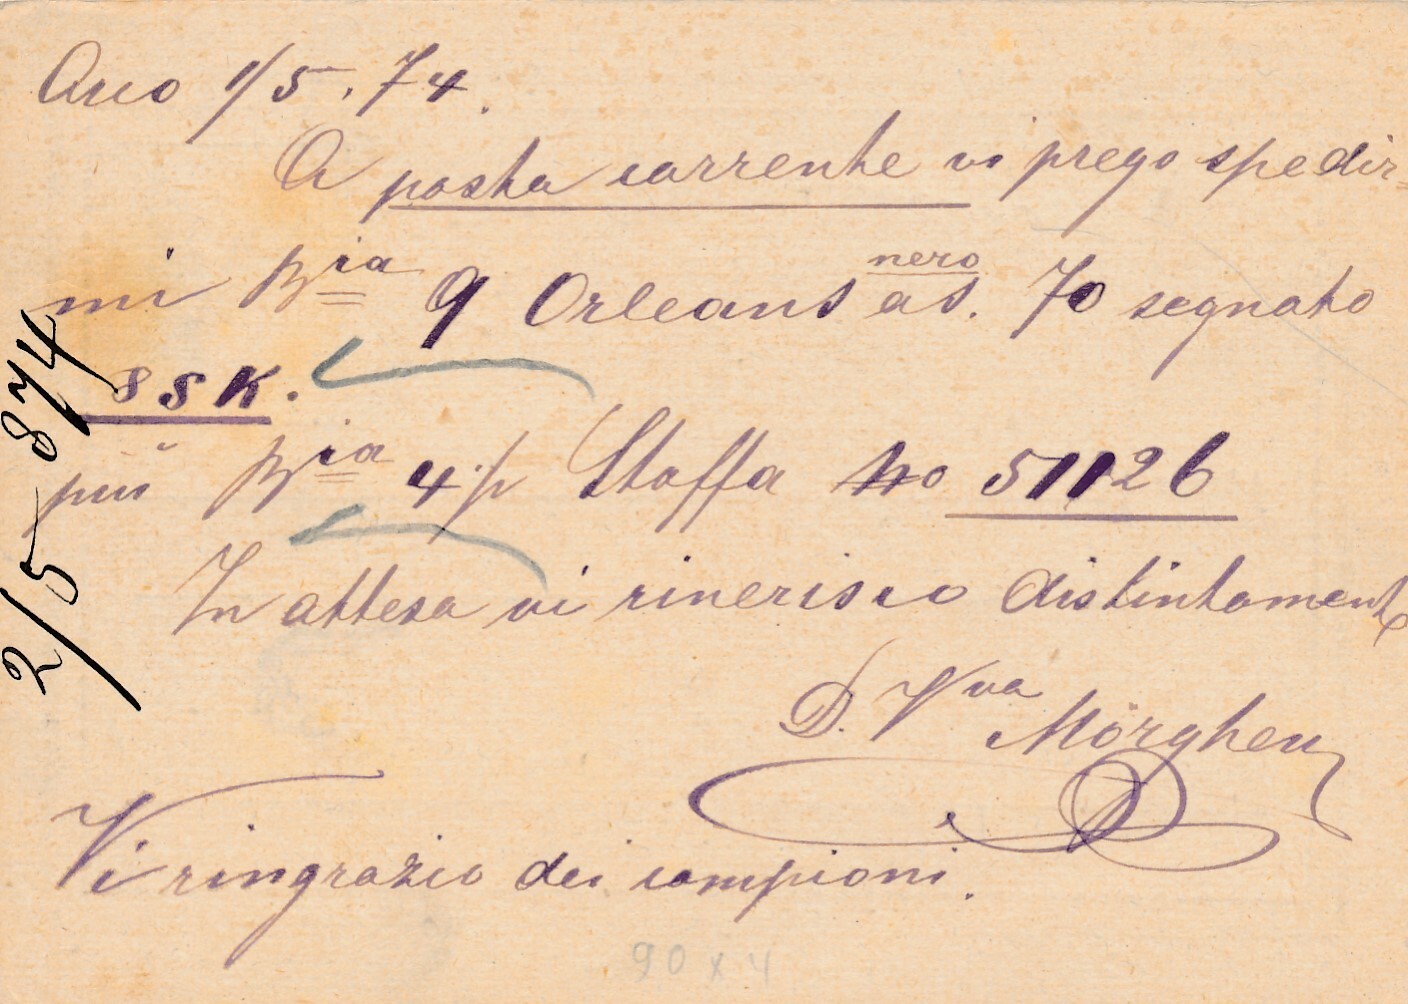 Arco 1/5. 74.
A posta corrente vi prego spedir=
mi Bia 9 Orleans nero as. 70 segnato
SSK.
più Bia 4 p Stoffa No 51126
In attesa vi riverisco distintamente
D. Vva Mörghen
Vi ringrazio dei campioni.
2/5 874
90 x 4